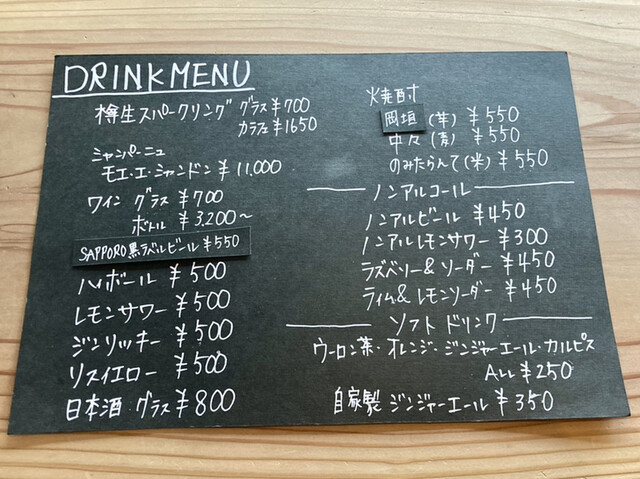 DRINK MENU
樽生スパークリング グラス ¥700
カラフェ ¥1650
シャンパーニュ
モエ・エ・シャンドン ¥11,000
ワイン グラス ¥700
ボトル ¥3,200〜
SAPPORO黒ラベルビール ¥550
ハイボール ¥500
レモンサワー ¥500
ジンリッキー ¥500
リスイエロー ¥500
日本酒 グラス ¥800
焼酎
岡垣 (芋) ¥550
中々 (麦) ¥550
のみたらんて (米) ¥550
ノンアルコール
ノンアルビール ¥450
ノンアルレモンサワー ¥300
ラズベリー&ソーダー ¥450
ライム&レモンソーダー ¥450
ソフトドリンク
ウーロン茶・オレンジ・ジンジャーエール・カルピス
ALL ¥250
自家製 ジンジャーエール ¥350